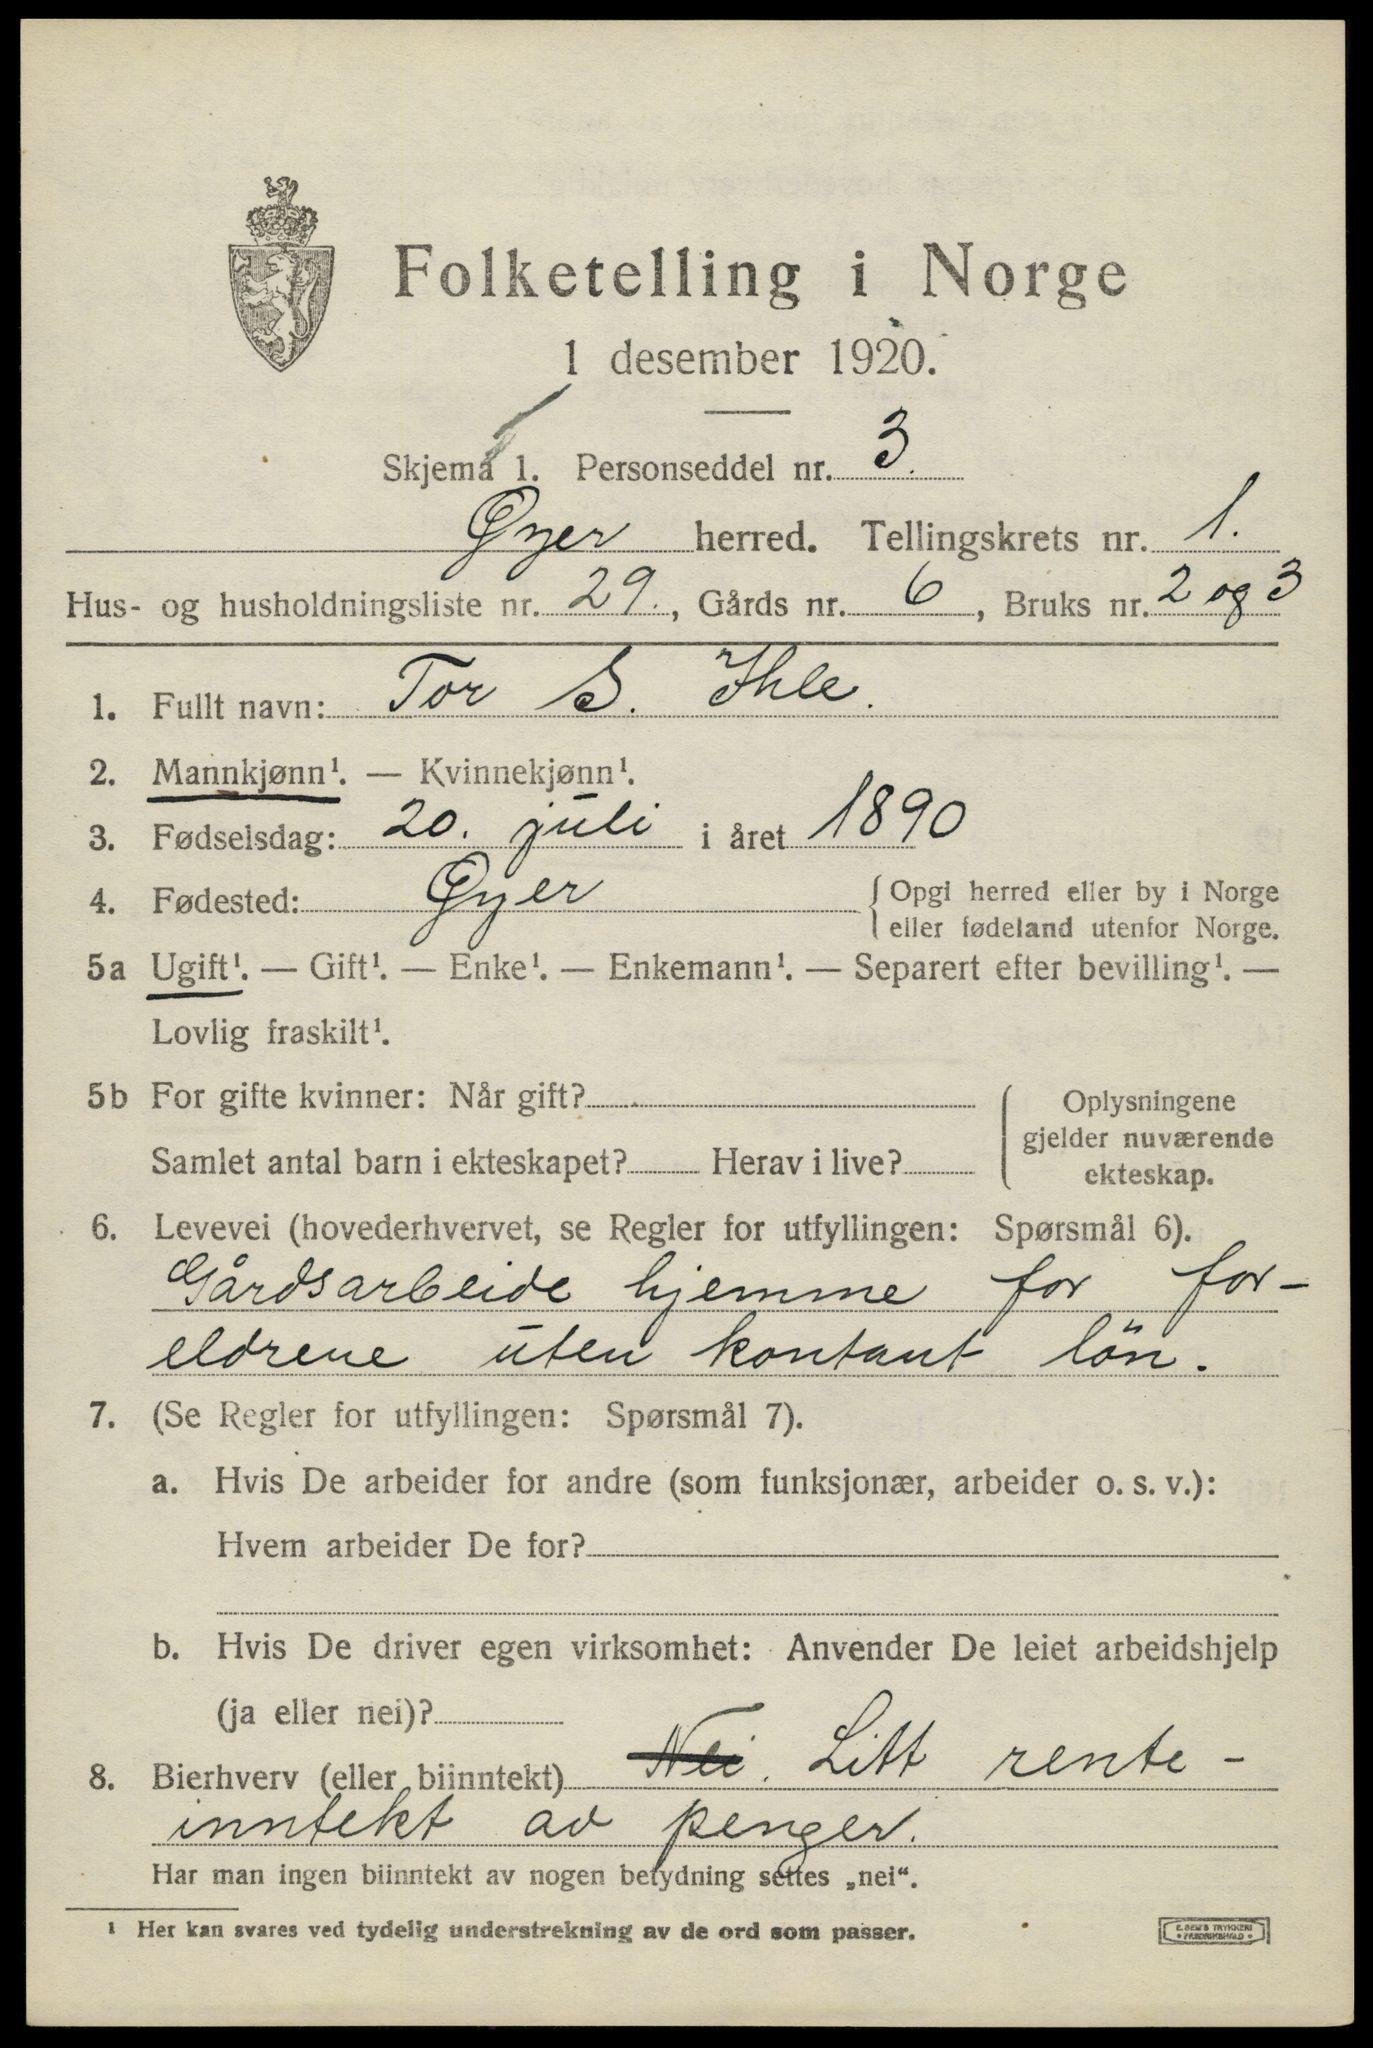 Folketelling i Norge
1 desember 1920.
Skjema 1. Personseddel nr. 3.
Øyer herred. Tellingskrets nr. 1.
Hus- og husholdningsliste nr. 29., Gårds nr. 6, Bruks nr. 2 og 3
1. Fullt navn: Tor S. Ihle.
2. Mannkjønn¹. — Kvinnekjønn¹.
3. Fødselsdag: 20. juli i året 1890
4. Fødested: Øyer { Opgi herred eller by i Norge
eller fødeland utenfor Norge.
5a Ugift¹. — Gift¹. — Enke¹. — Enkemann¹. — Separert efter bevilling¹. —
Lovlig fraskilt¹.
5b For gifte kvinner: Når gift?
Samlet antal barn i ekteskapet? Herav i live?
Oplysningene
gjelder nuværende
ekteskap.
6. Levevei (hovederhvervet, se Regler for utfyllingen: Spørsmål 6).
Gårdsarbeide hjemme for for-
eldrene uten kontant lön.
7. (Se Regler for utfyllingen: Spørsmål 7).
a. Hvis De arbeider for andre (som funksjonær, arbeider o. s. v.):
Hvem arbeider De for?
b. Hvis De driver egen virksomhet: Anvender De leiet arbeidshjelp
(ja eller nei)?
8. Bierhverv (eller biinntekt) Nei. Litt rente-
inntekt av penger.
Har man ingen biinntekt av nogen betydning settes „nei“.
¹ Her kan svares ved tydelig understrekning av de ord som passer.
E. SEM'S TRYKKERI
• FREDRIKSHALD •